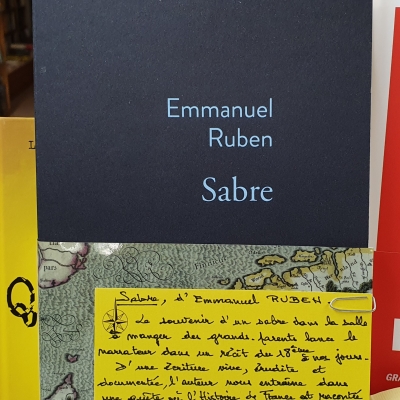 Emmanuel
Ruben
Sabre
Sabre, d'Emmanuel RUBEN
Le souvenir d'un sabre dans la salle
à manger des grands-parents lance le
narrateur dans un récit du 18ème à nos jours.
D'une écriture vive, érudite et
documentée, l'auteur nous entraîne dans
une quête où l'Histoire de France est racontée
GRA